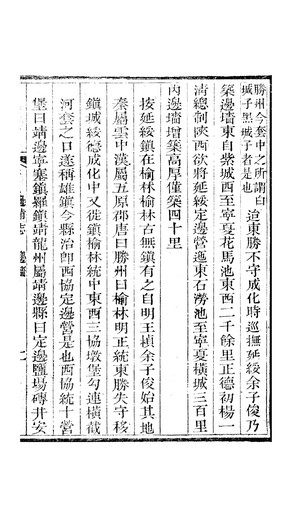 勝州今套中之所謂白
城子黑城子者是也
迨東勝不守成化時巡撫延綏余子俊乃
築邊墻東自紫城西至寧夏花馬池東西二千餘里正德初楊一
淸總制陝西欲將延綏定邊營迤東石澇池至寧夏橫城三百里
內邊墻增築高厚僅築四十里
按延綏鎮在榆林榆林古無鎮有之自明王楨余子俊始其地
秦屬雲中漢屬五原郡唐曰勝州曰榆林明正統東勝失守移
鎮城綏德成化中又徙鎮榆林統中東西三協墩堡勾連橫截
河套之口遂稱雄鎮今縣治即西協定邊營是也西協統十營
堡曰靖邊寧塞鎮羅鎮靖龍州屬靖邊縣曰定邊鹽場磚井安